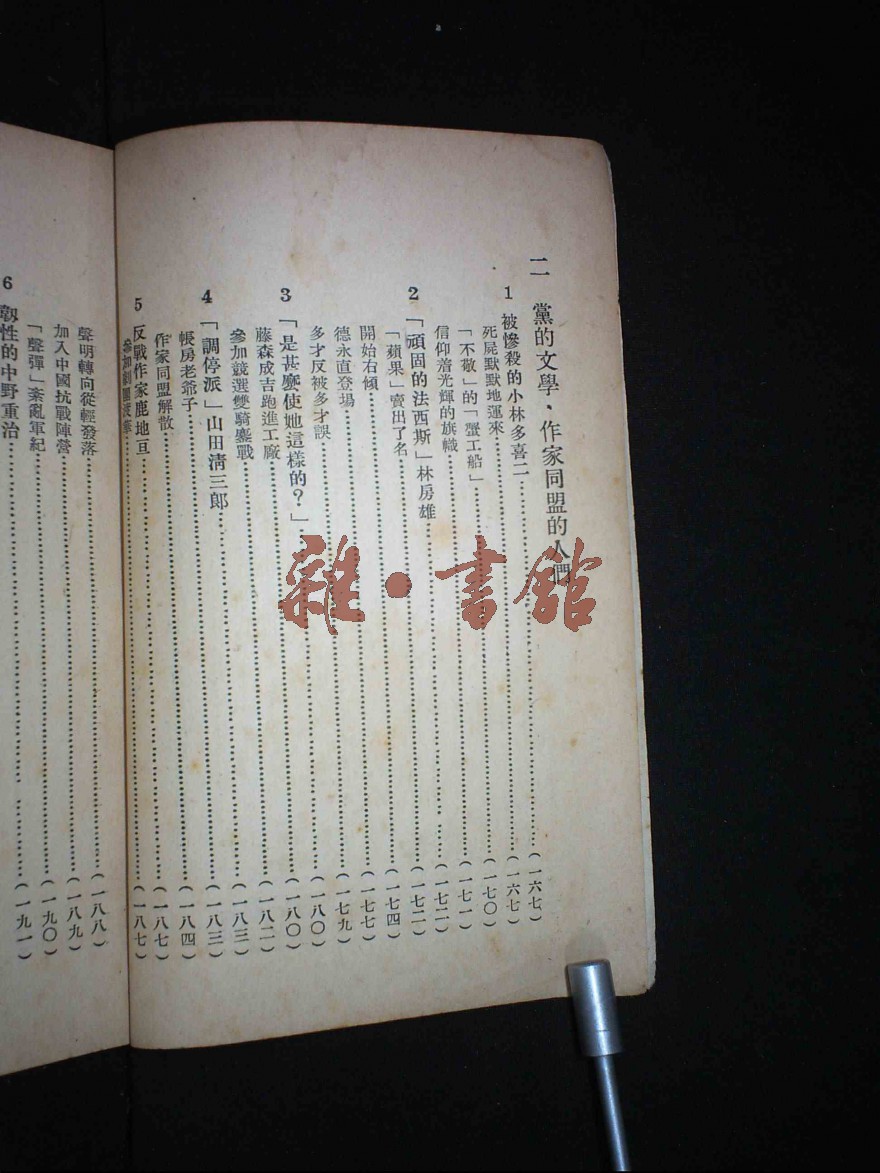 二 黨的文學·作家同盟的人們……(一六七)
1 被慘殺的小林多喜二……(一六七)
死屍默默地運來……(一七〇)
「不敬」的「蟹工船」……(一七一)
信仰着光輝的旗幟……(一七二)
2 「頑固的法西斯」林房雄……(一七二)
「蘋果」賣出了名……(一七四)
開始右傾……(一七七)
德永直登場……(一七九)
多才反被多才誤……(一八〇)
3 「是甚麼使她這樣的？」……(一八〇)
藤森成吉跑進工廠……(一八二)
參加競選雙騎鏖戰……(一八三)
4 「調停派」山田清三郎……(一八三)
帳房老爺子……(一八四)
作家同盟解散……(一八七)
5 反戰作家鹿地亘……(一八七)
參加劇團渡華……
聲明轉向從輕發落……(一八八)
加入中國抗戰陣營……(一八九)
「聲彈」紊亂軍紀……(一九〇)
6 韌性的中野重治……(一九一)
雜·書館